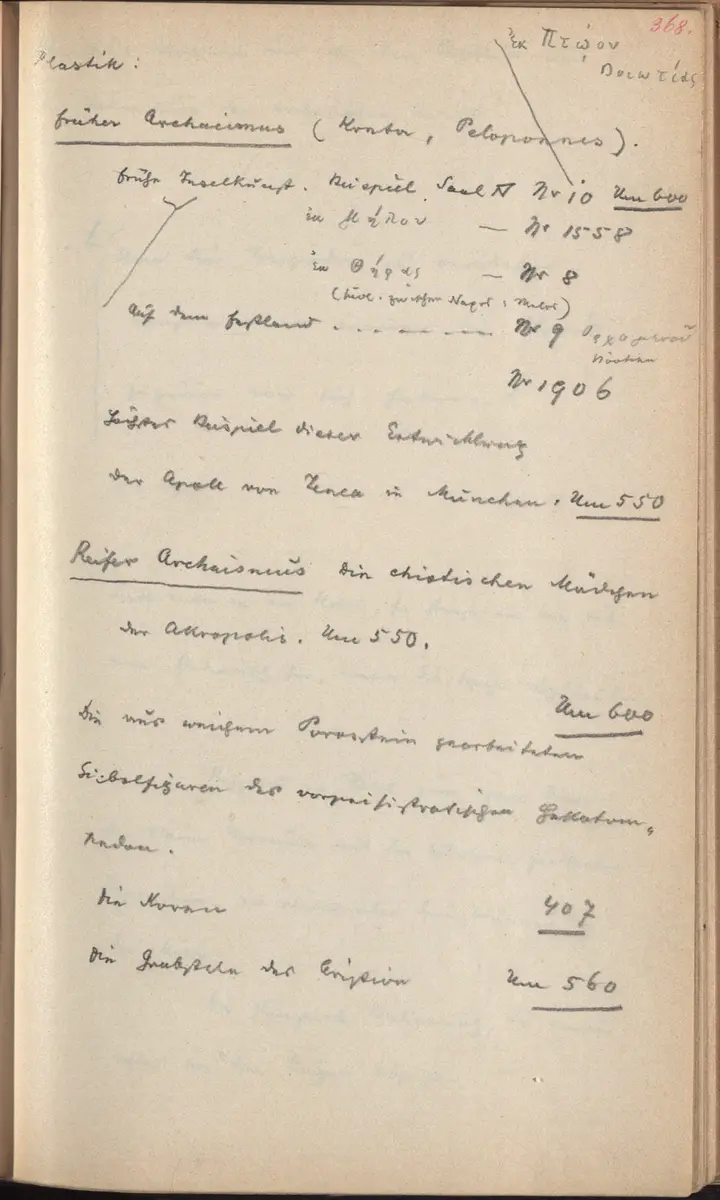 368.
ἐκ Πτῴον
Βοιωτίας
Plastik:
Früher Archaismus (Kreta, Peloponnes).
Frühe Inselkunst. Beispiel. Saal IV Nr 10 Um 600
ἐκ Μήλου — Nr 1558
ἐκ Θήρας — Nr 8
(südl. zwischen Naxos u Melos)
Auf dem Festland . . . — — — — Nr 9 Ὀρχομενοῦ
Böotien
Nr 1906
Letztes Beispiel dieser Entwicklung
der Apoll von Tenea in München. Um 550
Reifer Archaismus die chiotischen Mädchen
der Akropolis. Um 550.
Um 600
Die aus weichem Porosstein gearbeiteten
Giebelfiguren des vorpeisistratischen Hekatom-
pedon.
Die Koren 407
Die Grabstele des Aristion Um 560